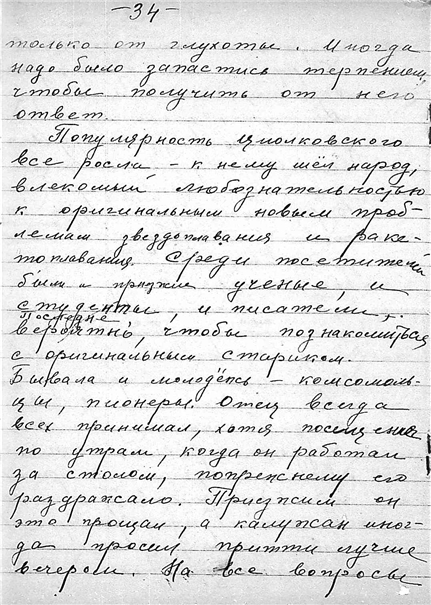 -34-
только от глухоты. Иногда
надо было запастись терпением,
чтобы получить от него
ответ.
Популярность Циолковского
все росла - к нему шёл народ,
влекомый любознательностью
к оригинальным новым проб-
лемам звездоплавания и раке-
топлавания. Среди посетителей
были и приезжие ученые, и
студенты, и писатели,
Последние
вероятно, чтобы познакомиться
с оригинальным стариком.
Бывала и молодёжь - комсомоль-
цы, пионеры. Отец всегда
всех принимал, хотя посещения
по утрам, когда он работал
за столом, попрежнему его
раздражало. Приезжим он
это прощал, а калужан иног-
да просил притти лучше
вечером. На все вопросы